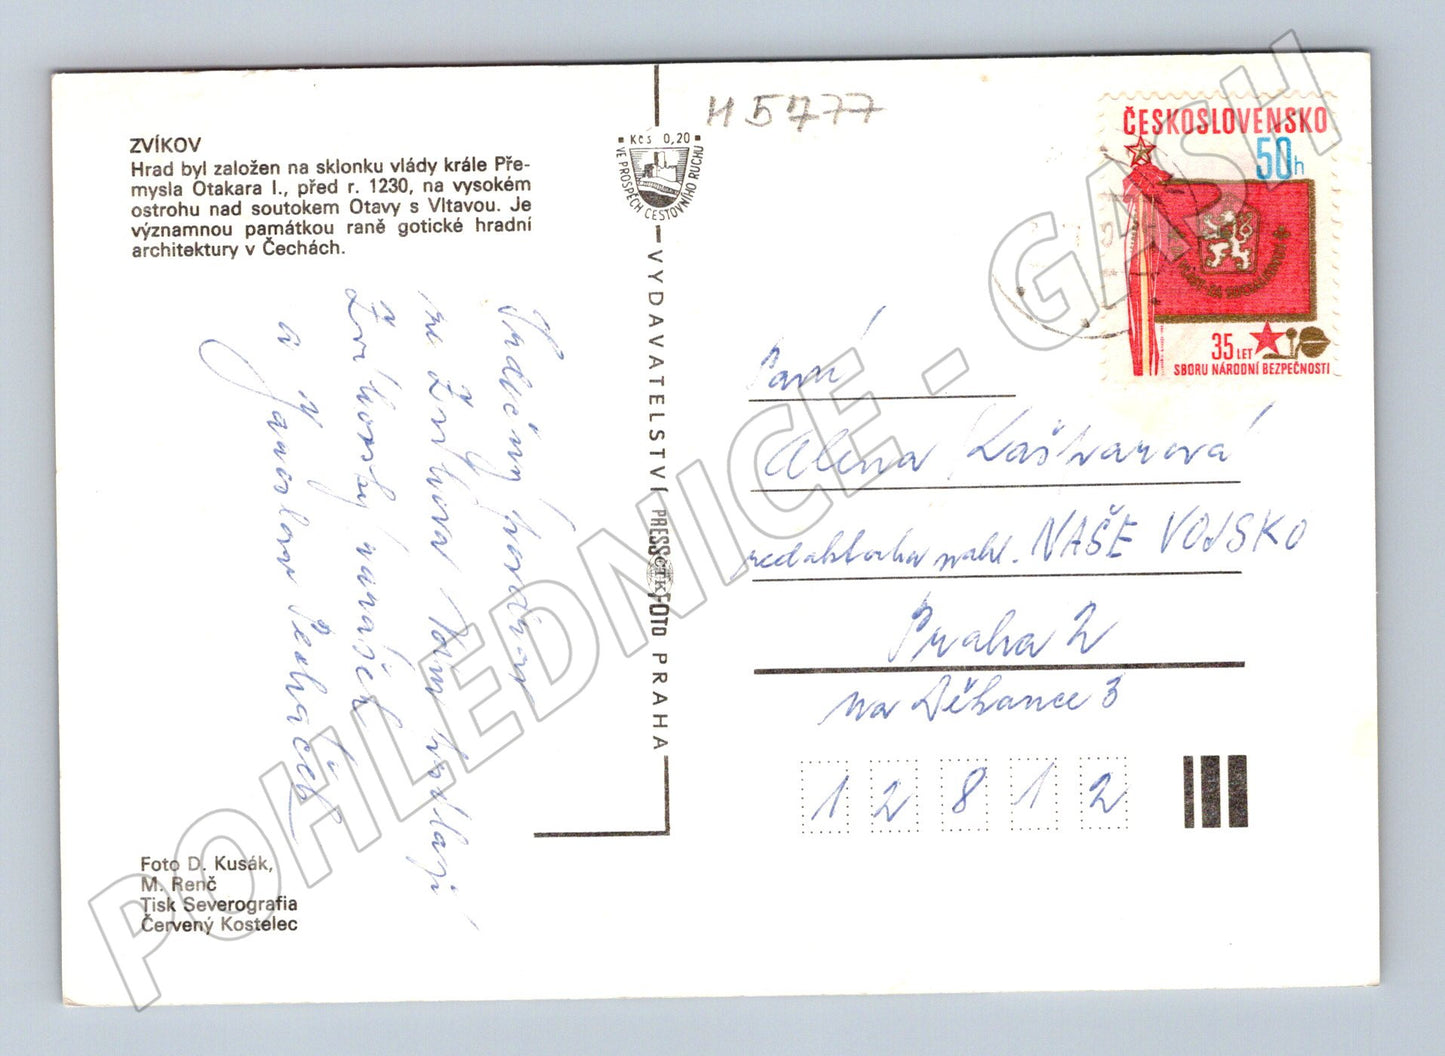 ZVÍKOV
Hrad byl založen na sklonku vlády krále Pře-
mysla Otakara I., před r. 1230, na vysokém
ostrohu nad soutokem Otavy s Vltavou. Je
významnou památkou raně gotické hradní
architektury v Čechách.
H 5777
Kčs 0,20
VE PROSPĚCH CESTOVNÍHO RUCHU
ČESKOSLOVENSKO
50h
35 LET
SBORU NÁRODNÍ BEZPEČNOSTI
Srdečný pozdrav
ze Zvíkova Vám
Zvíkovský
a Jaroslav
VYDAVATELSTVÍ PRESSFOTO PRAHA
ČTK
Paní
Alena Kaštvarová
redaktorka nakl. NAŠE VOJSKO
Praha 2
Na Děkance 3
12812
Foto D. Kusák,
M. Renč
Tisk Severografia
Červený Kostelec
POHLEDNICE - GASH